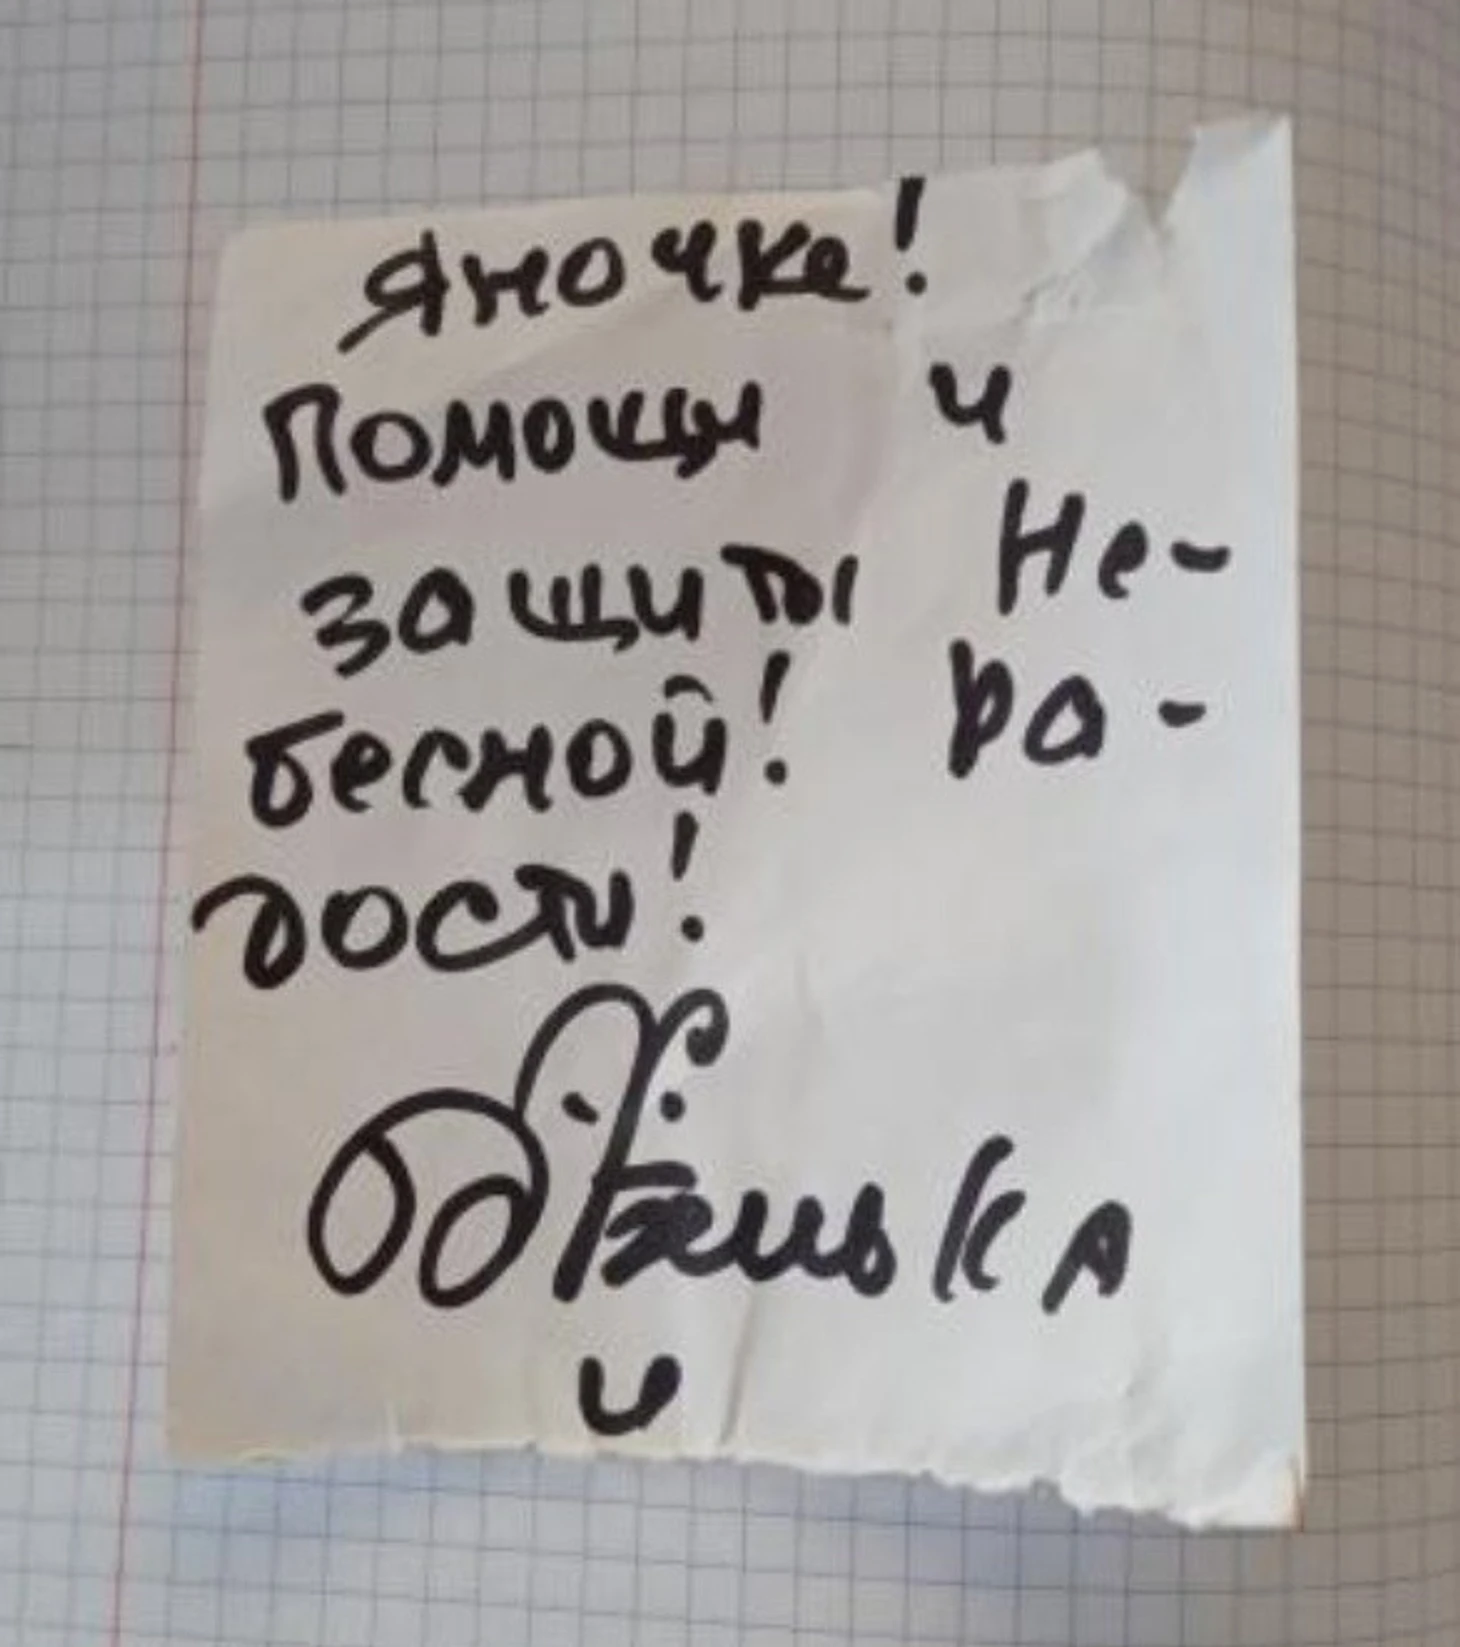 Яночке!
Помощи и
защиты Не-
бесной! Ра-
дости!